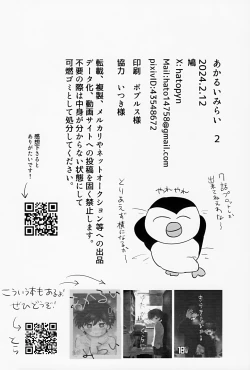 あかるいみらい 2
2024.2.12
鳩
X: hatopyn
Mail:hato14758@gmail.com
pixivID:43548672
印刷 ポプルス様
協力 いつき様
転載、複製、メルカリやネットオークション等への出品
データ化、動画サイトへの投稿を固く禁止します。
不要の際は中身が分からない状態にして
可燃ゴミとして処分してください。
感想下さると
ありがたいです!
やれやれ
とりあえず横になるか〜
こういう本もあるよ
ぜひどうぞ
とら
18